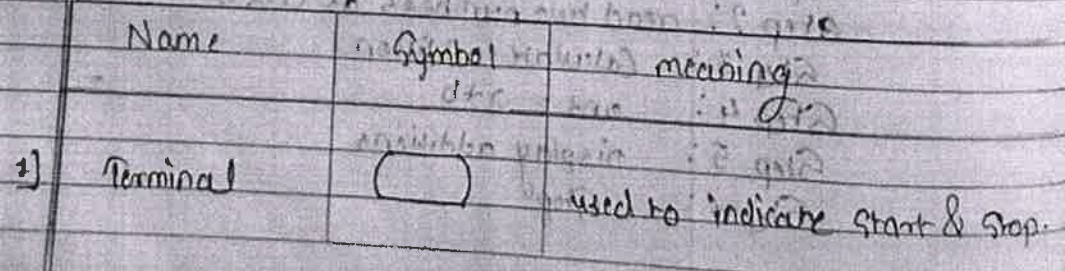 Name Symbol meaning
1] Terminal used to indicate Start & Stop.